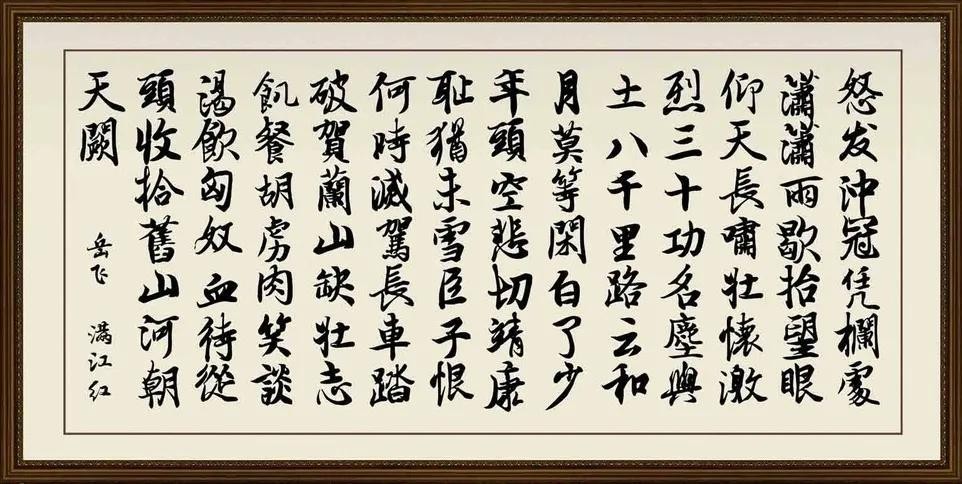 怒发沖冠凭欄處
瀟瀟雨歇抬望眼
仰天長嘯壯懷激
烈三十功名塵與
土八千里路云和
月莫等閑白了少
年頭空悲切靖康
耻猶未雪臣子恨
何時滅駕長車踏
破賀蘭山缺壯志
飢餐胡虜肉笑談
渴飲匈奴血待從
頭收拾舊山河朝
天闕
岳飞 满江红